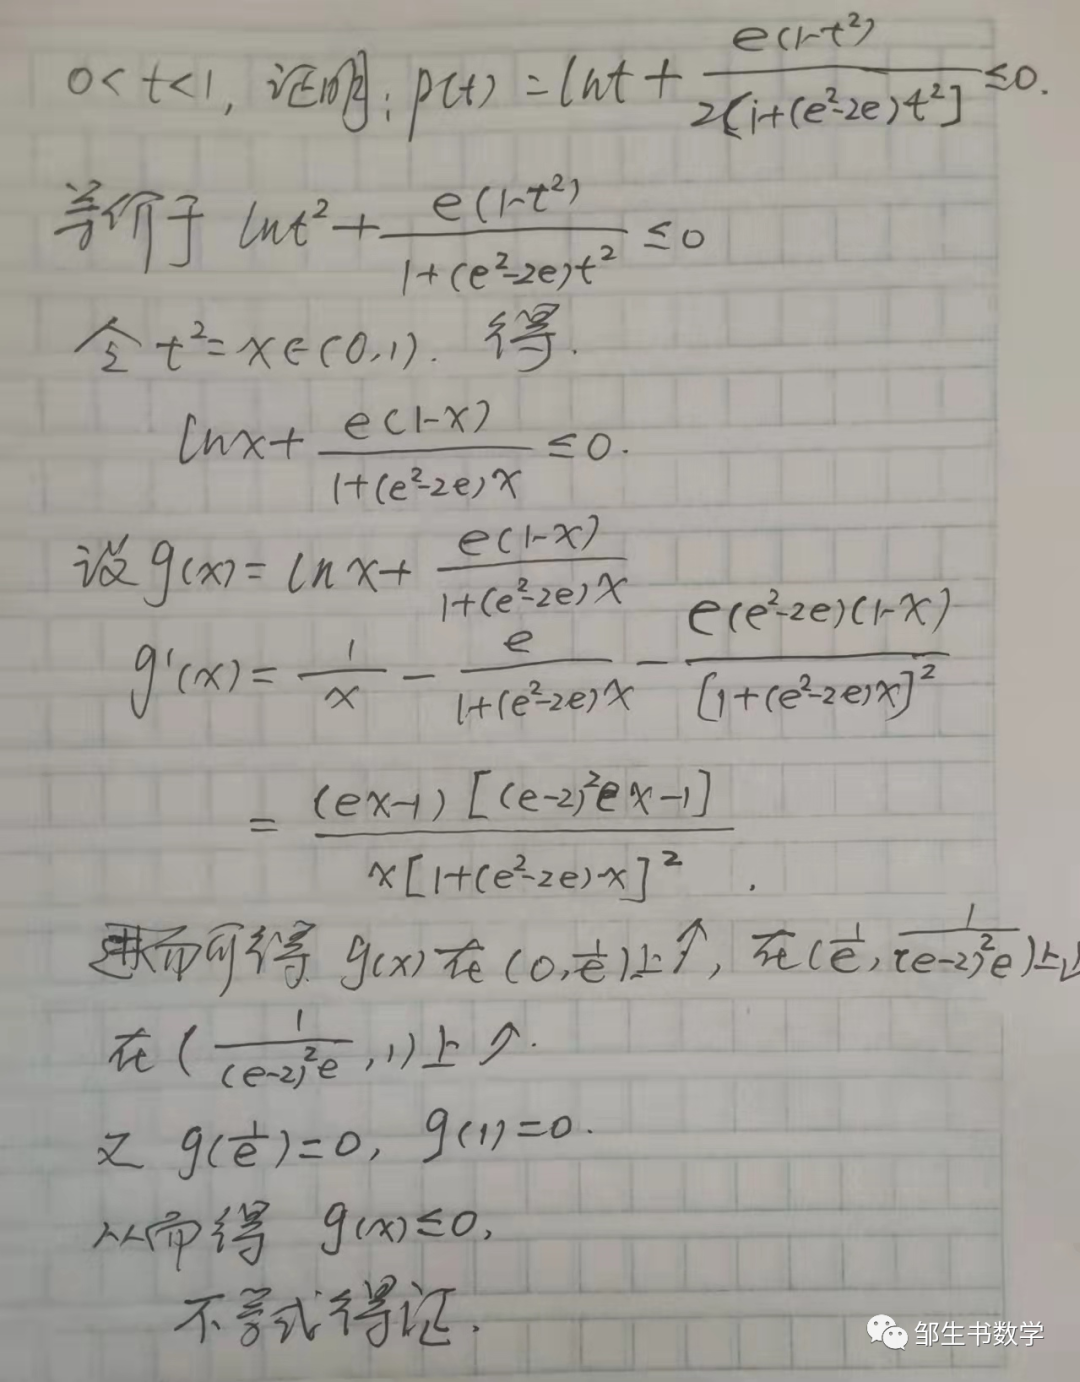 0<t<1, 证明: p(t) = lnt + e(1-t²)/2[1+(e²-2e)t²] ≤0.
等价于 lnt² + e(1-t²)/1+(e²-2e)t² ≤0
令 t²=x∈(0,1). 得.
lnx + e(1-x)/1+(e²-2e)x ≤0.
设 g(x) = lnx + e(1-x)/1+(e²-2e)x
g'(x) = 1/x - e/1+(e²-2e)x - e(e²-2e)(1-x)/[1+(e²-2e)x]²
= (ex-1)[(e-2)²ex-1]/x[1+(e²-2e)·x]² .
进而可得 g(x)在(0,1/e)上↗, 在(1/e, 1/(e-2)²e)上↘
在(1/(e-2)²e ,1)上↗.
又 g(1/e)=0, g(1)=0.
从而得 g(x)≤0,
不等式得证.
邹生书数学